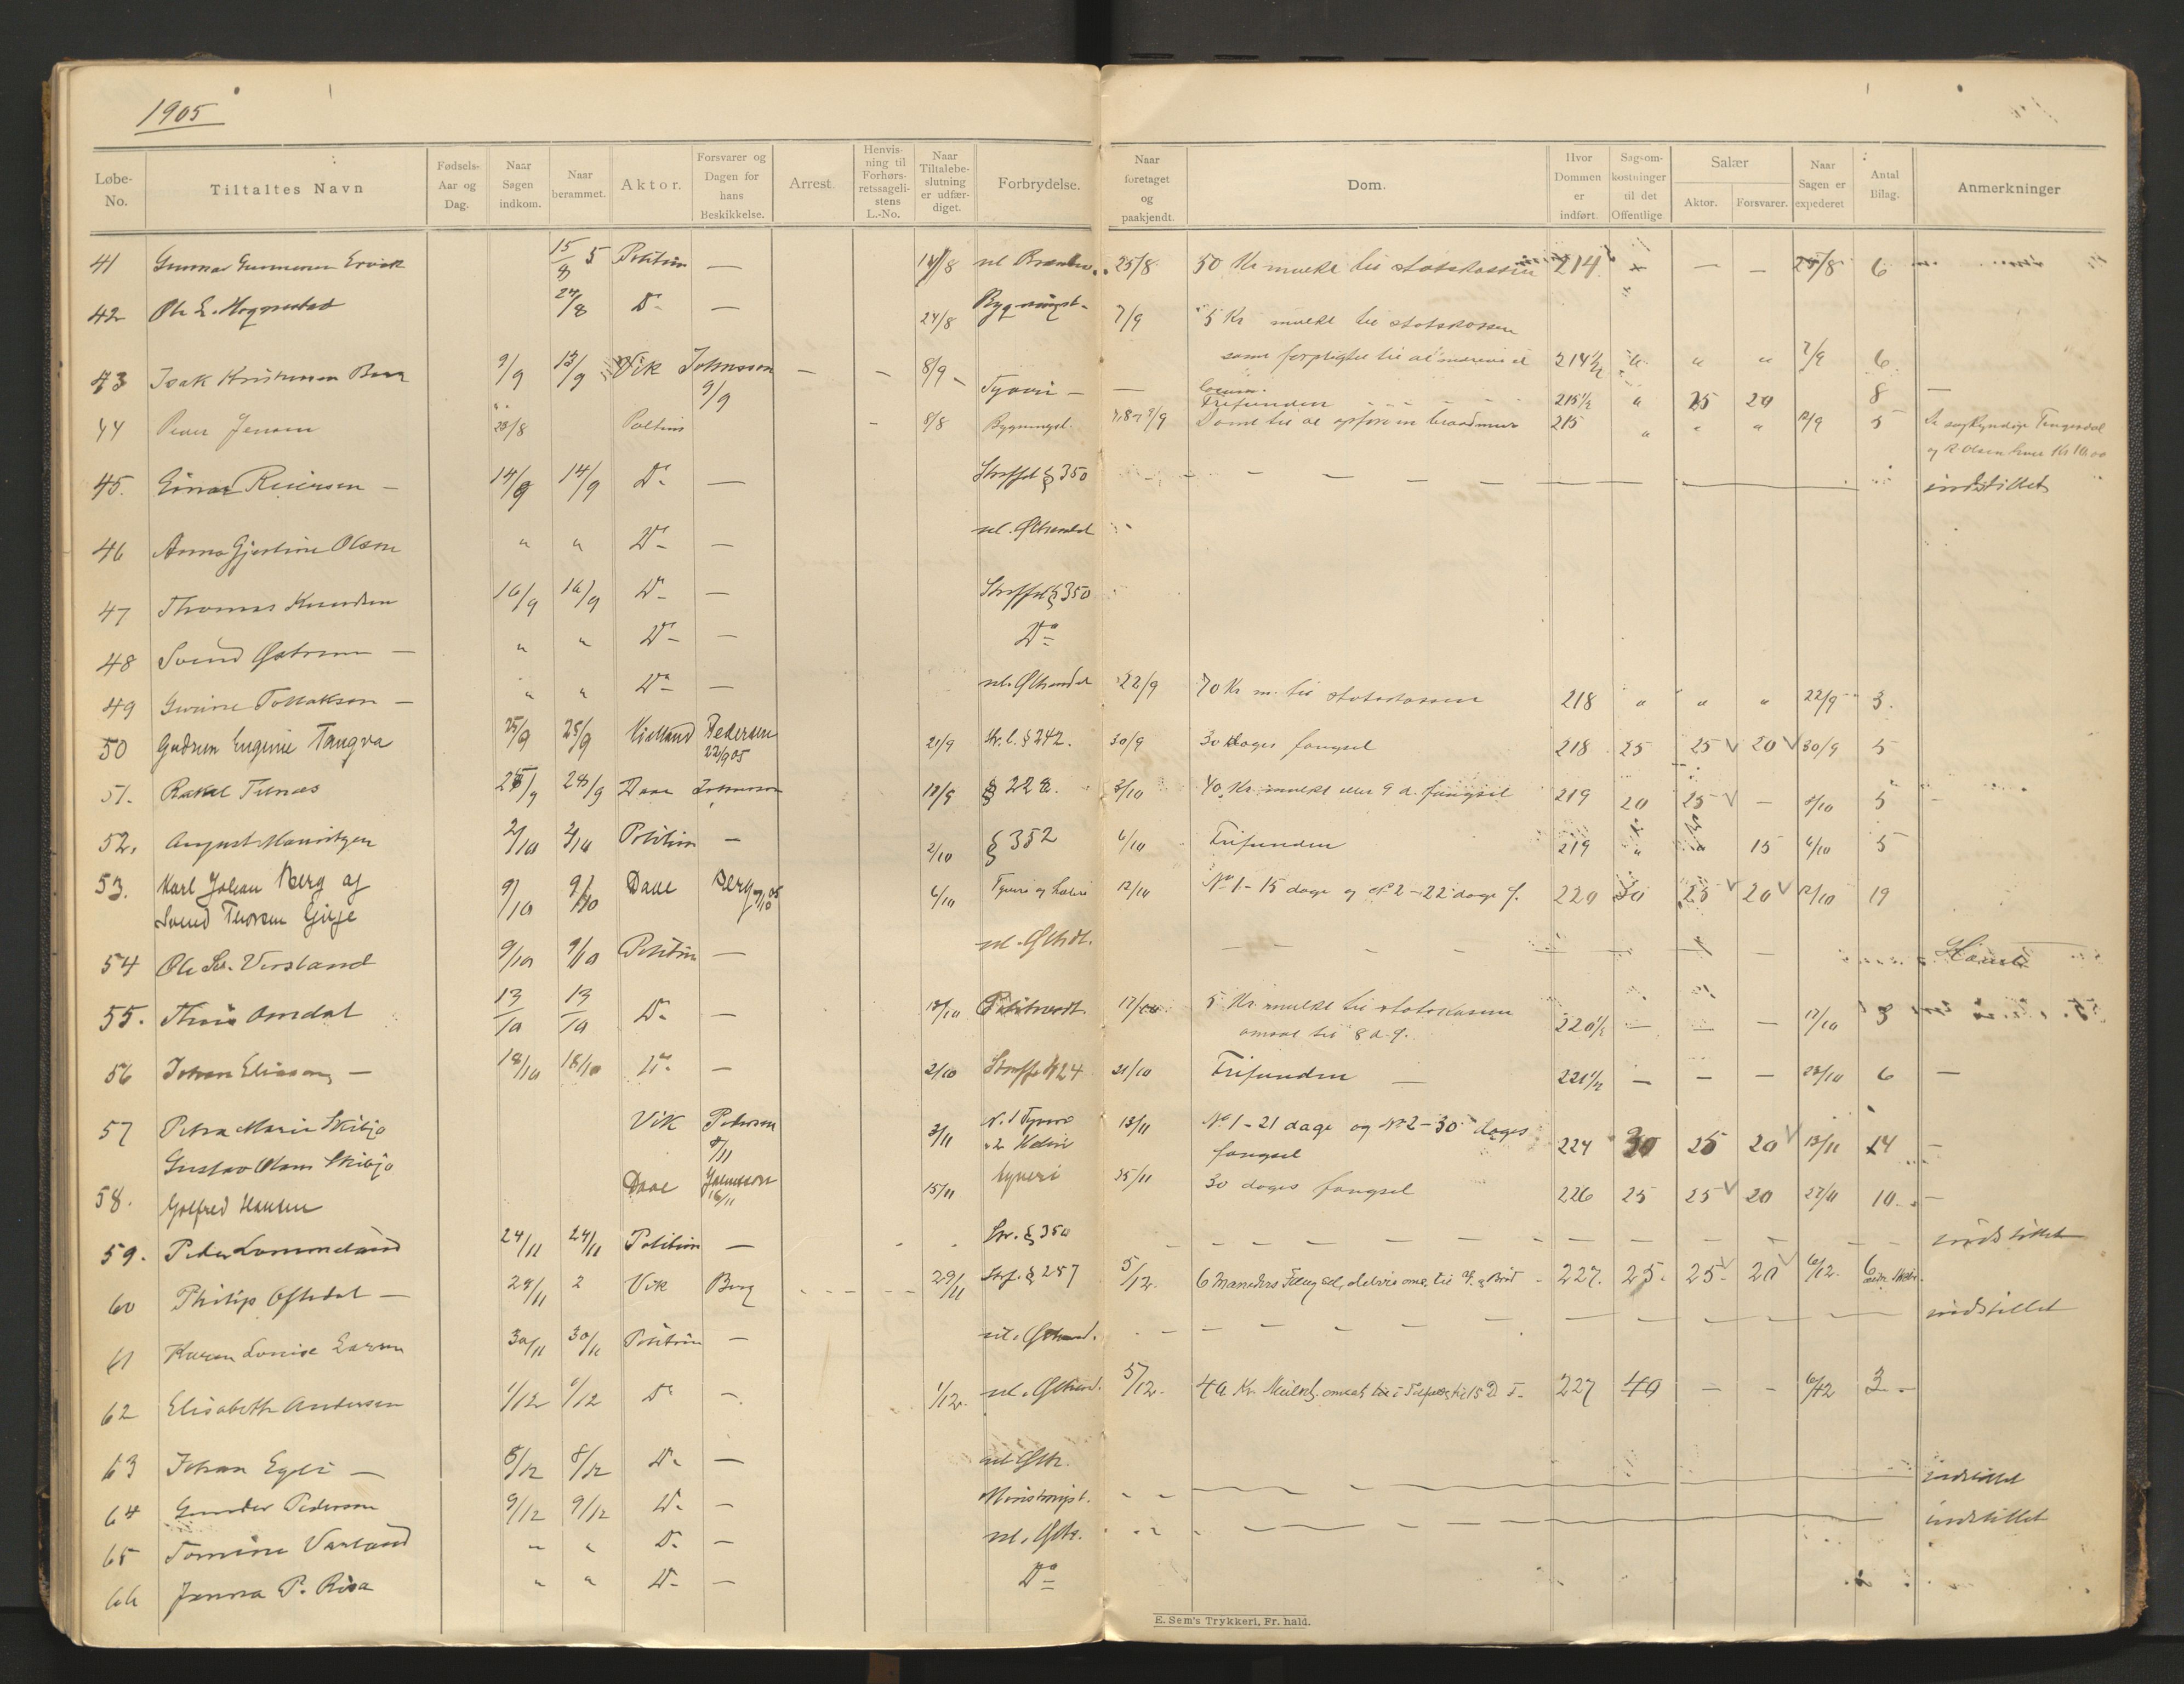 1905
Løbe-No. Tiltaltes Navn Fødsels-Aar og Dag. Naar Sagen indkom. Naar berammet. Aktor. Forsvarer og Dagen for hans Beskikkelse. Arrest. Henvis-ning til Forhørs-retssageli-stens L.-No. Naar Tiltalebe-slutning er udfær-diget. Forbrydelse. Naar foretaget og paakjendt. Dom. Hvor Dommen er indført. Sagsom-kostninger til det Offentlige Salær Aktor. Forsvarer. Naar Sagen er expederet Antal Bilag. Anmerkninger
41 Gunnar Gunnarsen Ervik 15/8 5 Politim — 14/8 ul. 25/8 50 Kr mulkt til statskassen 214 — — 25/8 6
42 Ole E. Mognestad 24/8 Do — 24/8 Bygningsl. 7/9 5 Kr mulkt til statskassen
samt forpligtet til at 214 1/2 " " " 7/9 6
43 Isak Kristensen Berg 9/9 13/9 Vik Johnsson 9/9 — — 8/9 Tyveri — — Frifunden 215 1/2 " 25 20 8 —
44 Peder Jensen 28/8 Politim - 8/8 Bygningsl. Dømt til at opføre en brandmur 215 " " " 12/9 5 De sagkyndige Tengesdal
og R Olsen hver Kr 10.00
45. Einar Reiersen — 14/9 14/9 Do — Straffel § 350 indstillet
46 Anna Gjertine Olsen " " Do — ul. Ølhandel
47 Thomas Knudsen 16/9 16/9 Do — Straffel § 350
48 Svend Østrem — " " Do — Do
49 Gurine Tollaksen — " " Do — ul. Ølhandel 22/9 70 Kr m. til statskassen 218 " " " 22/9 3.
50 Gudrun Eugenie Tangva 25/9 25/9 Kielland Pedersen 22/9 05 21/9 Str. l. § 242. 30/9 30 dages fængsel 218 25 25 20 30/9 5
51. Rakel Tunæs 28/9 Daae Johnsson § 228. 3/10 40 Kr. mulkt eller 9 d. fængsel 219 20 25 — 5
52. August Mauritzen 2/10 3/10 Politim — 2/10 § 352 6/10 Frifunden 219 " 15 6/10 5
53. Karl Johan Berg og 9/10 9/10 Daae Berg 6/10 Tyveri og Hæleri 12/10 No 1 - 15 dage og No 2 - 22 dage f. 220 30 25 20 12/10 19
Svend Thorsen Gilje
54 Ole Versland 9/10 9/10 Politim — ul. Ølhdl. Hævet
55. Amdal 13/10 13/10 Do — 13/10 Politivedt. 17/10 5 Kr. mulkt til statskassen
omsat til 8 d. f. 220 1/2 — — — 17/10 3
56 Johan Eliassen — 18/10 18/10 Do — 2/10 Straffel 424 21/10 Frifunden — 221 1/2 — — — 23/10 6 —
57 Petra Marie Skibjo Vik Pedersen 8/11 3/11 N. 1 Tyveri " 2 Hæleri 13/11 No 1 - 21 dage og No 2 - 30 dages
Gustav Olsen Skibjo fængsel 224 30 25 20 13/11 14 —
58. Gotfred Hansen Daae Johnsson 16/11 15/11 tyveri 25/11 30 dages fængsel 226 25 25 20 27/11 10 —
59. Peder Lommeland 24/11 24/11 Politim — Str. § 350 indstillet
60 Philip Oftedal — 29/11 2 Vik Berg 29/11 Strf. § 257 5/12. 6 Maaneders Fængsel, delvis oms. til V. & Brød 227. 25. 25. 20 6/12. 6
61 Karen Louise Larsen 30/11 30/11 Politim — ul. Ølhand. indstillet
62 Elisabeth Andersen 1/12 1/12 Do — 1/12. ul. Ølhand. 5/12. 40 Kr. Mulkt, omsat til 15 D F. 227 40 — — 6/12 3
63 Johan Egeli — 8/12 8/12 Do — ul Ølh. indstillet
64 Gunder Pedersen 9/12 9/12 Do — indstillet
65 Tomine Varland " " Do — ul. Ølh.
66 Janna P. Risa " " Do — Do
E. Sem's Trykkeri, Fr. hald.